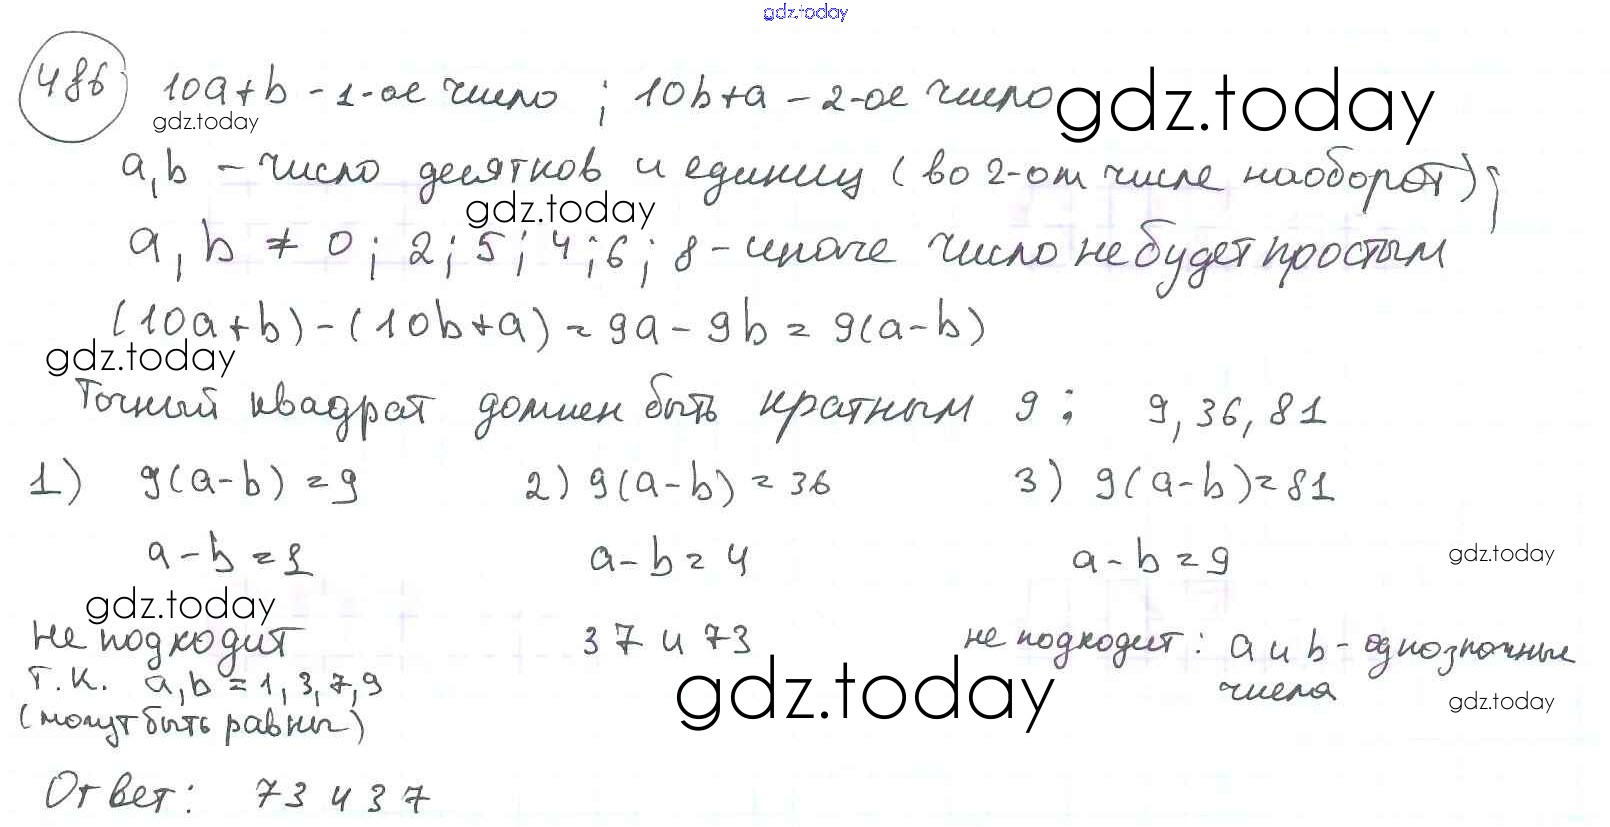 gdz.today
486 10a+b - 1-ое число ; 10b+a - 2-ое число
gdz.today gdz.today
a,b - число десятков и единиц (во 2-от числе наоборот);
gdz.today
a, b ≠ 0; 2; 5; 4; 6; 8 - иначе число не будет простым
(10a+b)-(10b+a)=9a-9b=9(a-b)
gdz.today
Точный квадрат должен быть кратным 9: 9, 36, 81
1) 9(a-b)=9 2) 9(a-b)=36 3) 9(a-b)=81
a-b=1 a-b=4 a-b=9
gdz.today
gdz.today
не подходит 37 и 73 не подходит: a и b - однозначные
т.к. a,b=1,3,7,9 числа
gdz.today gdz.today
(могут быть равны)
Ответ: 73 и 37